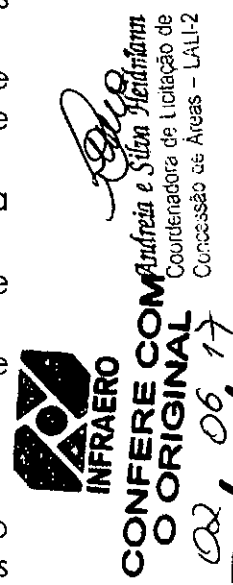 INFRAERO
CONFERE COM
O ORIGINAL
02, 06, 17
Andreia e Silva Heidmann
Coordenadora de Licitação de
Concessão de Áreas – LALI-2